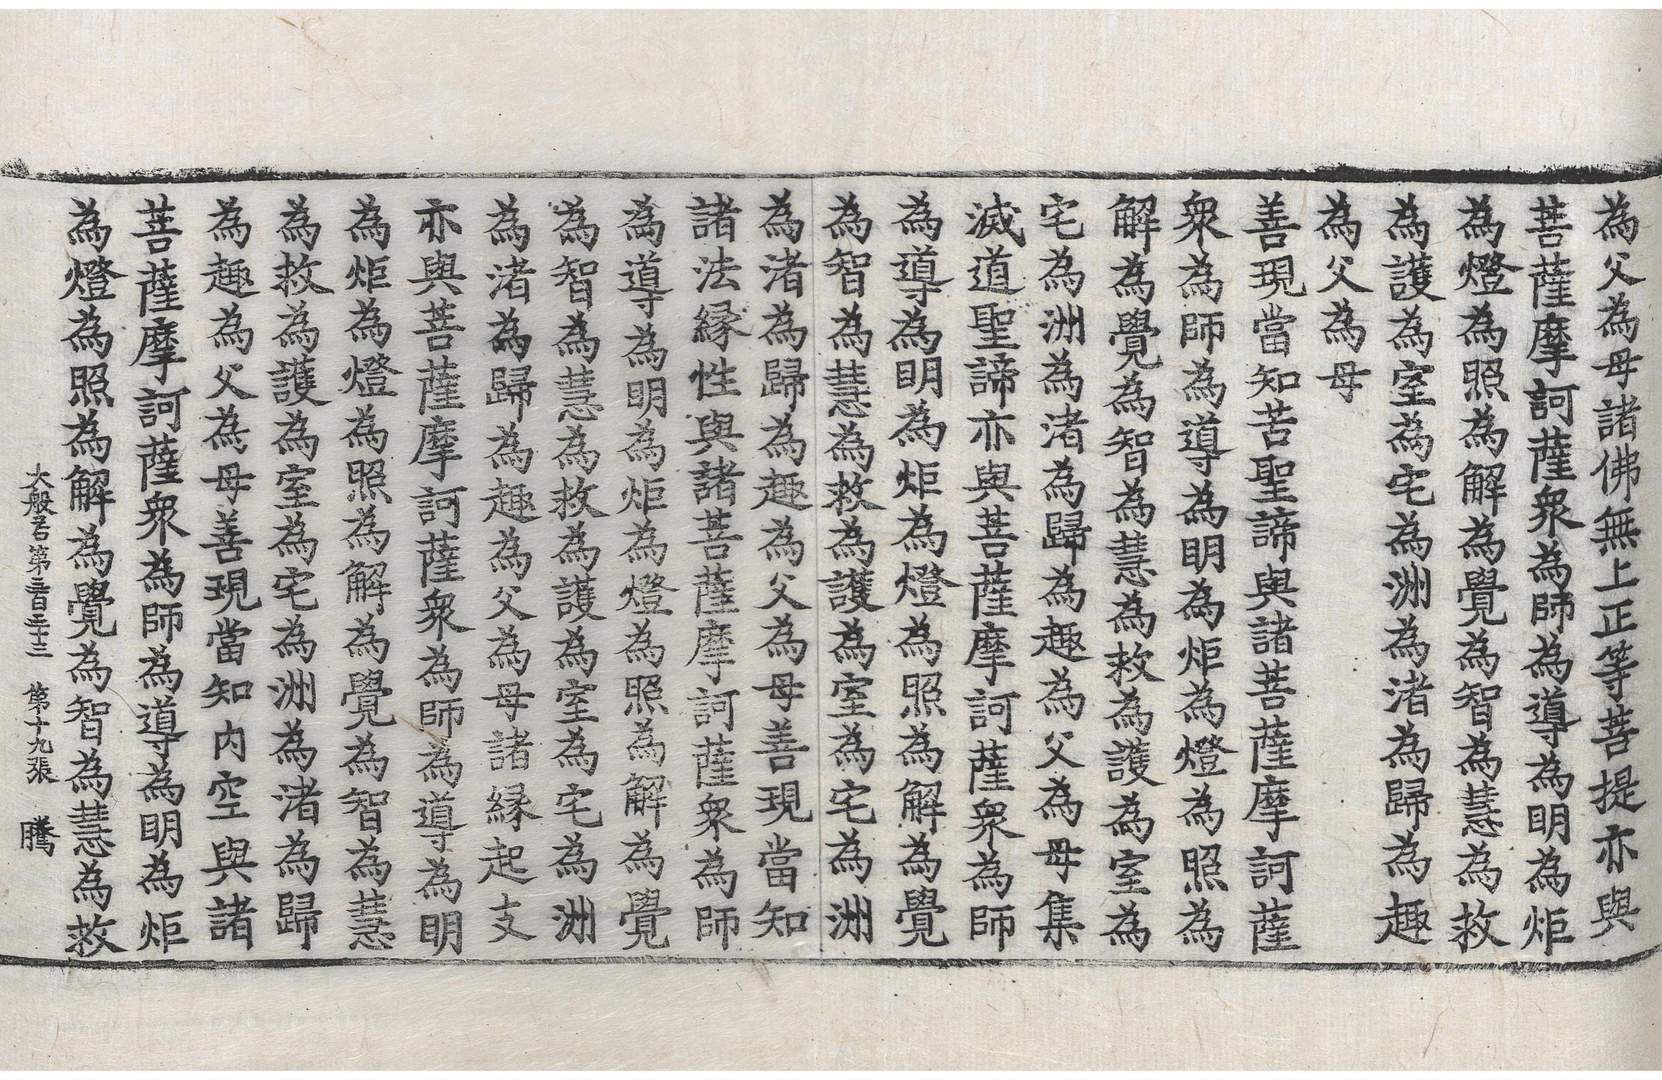 為父為母諸佛無上正等菩提亦與
菩薩摩訶薩衆為師為導為明為炬
為燈為照為解為覺為智為慧為救
為護為室為宅為洲為渚為歸為趣
為父為母
善現當知苦聖諦與諸菩薩摩訶薩
衆為師為導為明為炬為燈為照為
解為覺為智為慧為救為護為室為
宅為洲為渚為歸為趣為父為母集
滅道聖諦亦與菩薩摩訶薩衆為師
為導為明為炬為燈為照為解為覺
為智為慧為救為護為室為宅為洲
為渚為歸為趣為父為母善現當知
諸法縁性與諸菩薩摩訶薩衆為師
為導為明為炬為燈為照為解為覺
為智為慧為救為護為室為宅為洲
為渚為歸為趣為父為母諸縁起支
亦與菩薩摩訶薩衆為師為導為明
為炬為燈為照為解為覺為智為慧
為救為護為室為宅為洲為渚為歸
為趣為父為母善現當知内空與諸
菩薩摩訶薩衆為師為導為明為炬
為燈為照為解為覺為智為慧為救
大般若第三百三十三 第十九張 騰